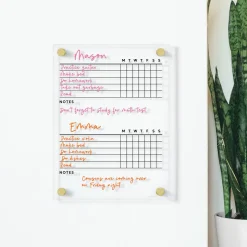 Mason
M T W T F S S
Practice guitar
Make bed
Do homework
Take out garbage
Read
NOTES
Don't forget to study for math test.
Emma
M T W T F S S
Practice violin
Make bed
Do homework
Do dishes
Read
NOTES
Cousins are coming over
on Friday night.